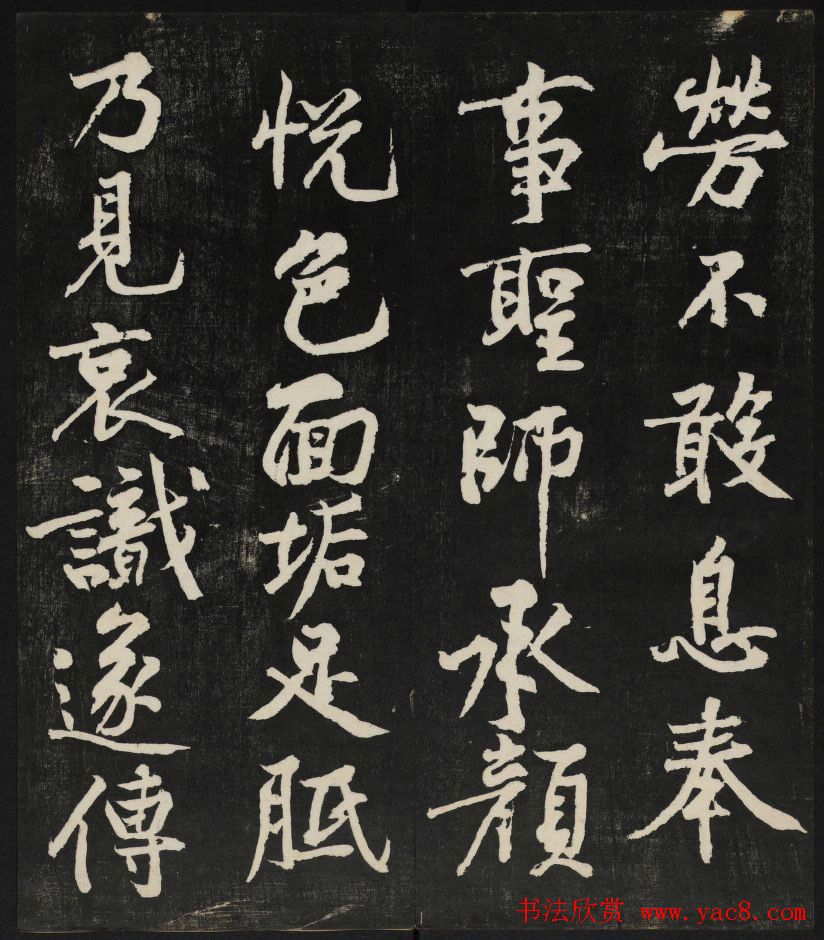 勞不敢息奉
事聖師承顏
悅色面垢足胝
乃見哀識遂傳
书法欣赏 www.yac8.com